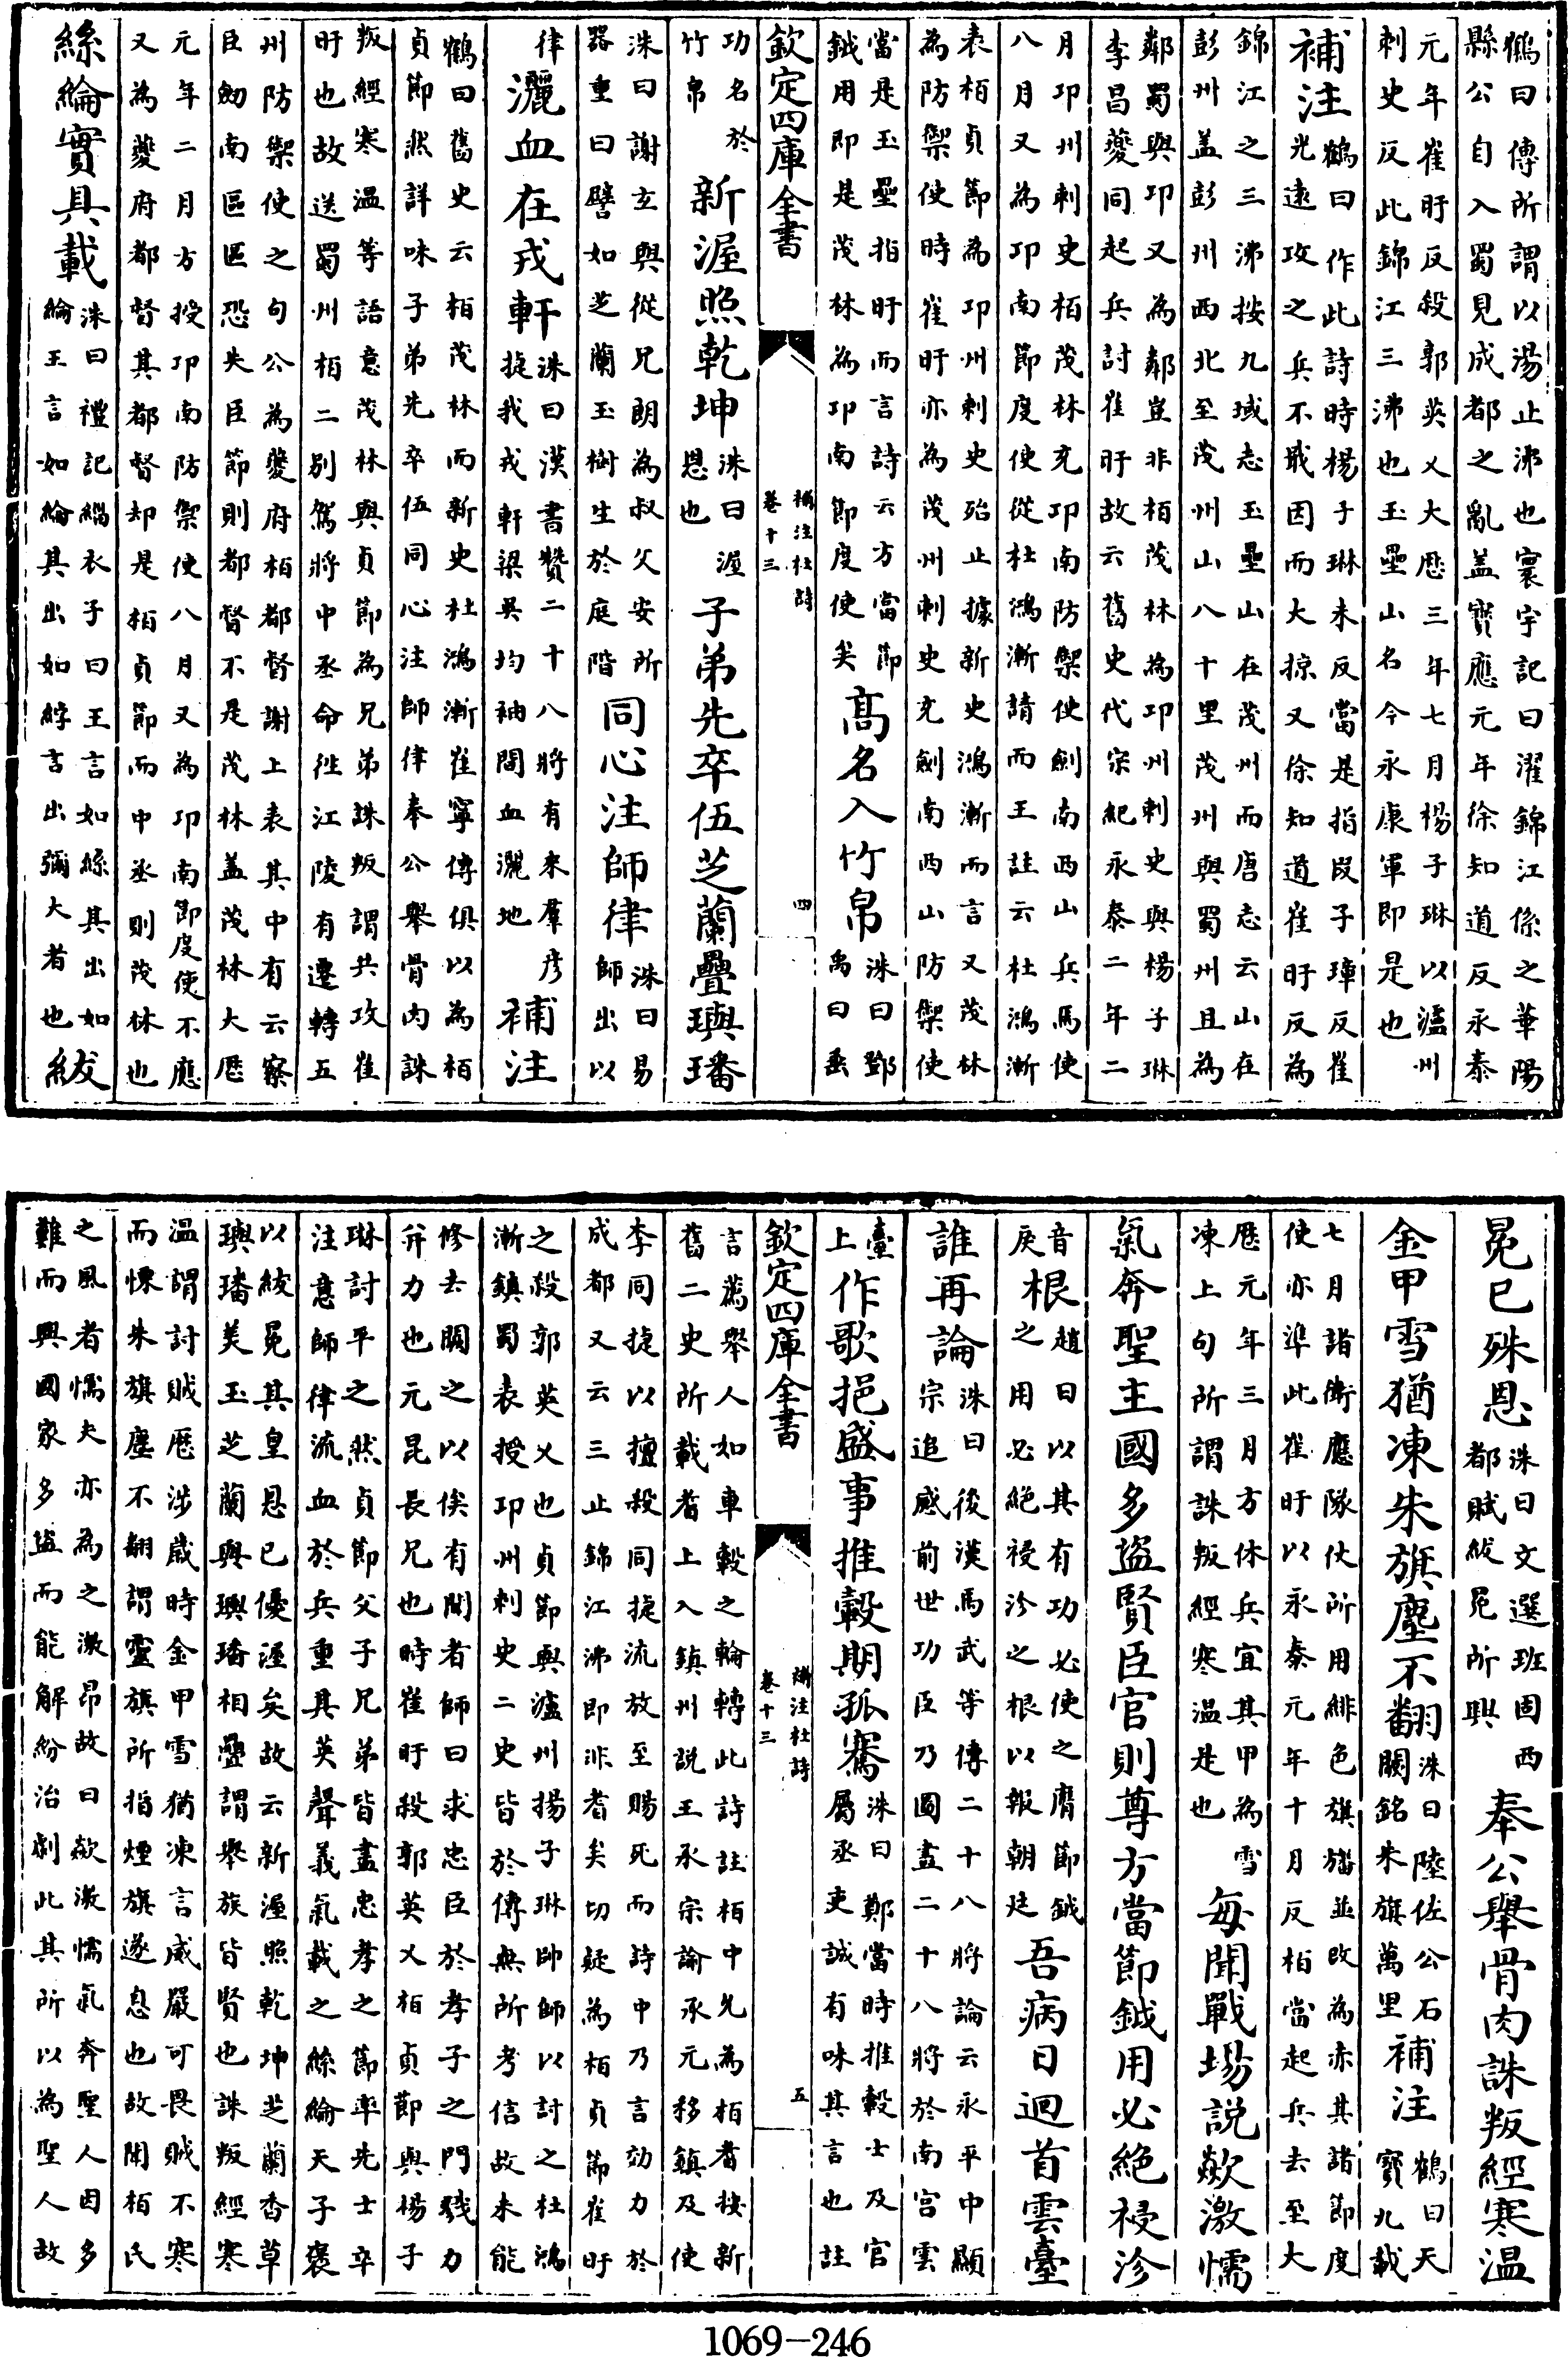 鶴曰傳所謂以湯止沸也寰宇記曰濯錦江係之華陽
縣公自入蜀見成都之亂盖寳應元年徐知道反永泰
元年崔旰反殺郭英乂大厯三年七月楊子琳以瀘州
刺史反此錦江三沸也玉壘山名今永康軍即是也
補注鶴曰作此詩時楊子琳未反當是指叚子璋反崔
光遠攻之兵不戢因而大掠又徐知道崔旰反為
錦江之三沸按九域志玉壘山在茂州而唐志云山在
彭州盖彭州西北至茂州山八十里茂州與蜀州且為
鄰蜀與卭又為鄰豈非栢茂林為卭州刺史與楊子琳
李昌夔同起兵討崔旰故云舊史代宗紀永泰二年二
月卭州刺史栢茂林充卭南防禦使劍南西山兵馬使
八月又為卭南節度使從杜鴻漸請而王註云杜鴻漸
表栢貞節為卭州刺史殆止據新史鴻漸而言又茂林
為防禦使時崔旰亦為茂州刺史充劍南西山防禦使
當是玉壘指旰而言詩云方當節鉞用即是茂林為卭南節度使矣高名入竹帛洙曰鄧禹曰垂
欽定四庫全書 補注杜詩 卷十三 四
功名於竹帛新渥照乾坤洙曰渥恩也子弟先卒伍芝蘭疊璵璠
洙曰謝玄與從兄朗為叔父安所器重曰譬如芝蘭玉樹生於庭階同心注師律洙曰易師出以
律灑血在戎軒洙曰漢書贊二十八將有來羣彦捷我戎軒梁吳均袖間血灑地補注
鶴曰舊史云栢茂林而新史杜鴻漸崔寧傳俱以為栢
貞節然詳味子弟先卒伍同心注師律奉公舉骨肉誅
叛經寒温等語意茂林與貞節為兄弟誅叛謂共攻崔
旰也故送蜀州栢二别駕將中丞命徃江陵有遷轉五
州防禦使之句公為夔府栢都督謝上表其中有云察
臣劒南區區恐失臣節則都督不是茂林盖茂林大厯
元年二月方授卭南防禦使八月又為卭南節度使不應
又為夔府都督其都督却是栢貞節而中丞則茂林也
絲綸實具載洙曰禮記緇衣子曰王言如絲其出如綸王言如綸其出如綍言出彌大者也紱
冕已殊恩洙曰文選班固西都賦紱冕所興奉公舉骨肉誅叛經寒温
金甲雪猶凍朱旗塵不翻洙曰陸佐公石闕銘朱旗萬里補注鶴曰天寳九載
七月諸衛應隊仗所用緋色旗旛並改為赤其諸節度
使亦準此崔旰以永泰元年十月反栢當起兵去至大
厯元年三月方休兵宜其甲為雪凍上句所謂誅叛經寒温是也每聞戰場説欻激懦
氣奔聖主國多盜賢臣官則尊方當節鉞用必絶祲沴
音戾根趙曰以其有功必使之膺節鉞之用必絶祲沴之根以報朝廷吾病日迴首雲臺
誰再論洙曰後漢馬武等傳二十八將論云永平中顯宗追感前世功臣乃圖畫二十八將於南宫雲
臺上作歌挹盛事推轂期孤騫洙曰鄭當時推轂士及官屬丞吏誠有味其言也註
欽定四庫全書 補注杜詩 卷十三 五
言薦舉人如車轂之輪轉此詩註栢中允為栢耆按新
舊二史所載耆上入鎮州説王承宗諭承元移鎮及使
李同捷以擅殺同捷流放至賜死而詩中乃言効力於
成都又云三止錦江沸即非耆矣切疑為栢貞節崔旰
之殺郭英乂也貞節與瀘州揚子琳帥師以討之杜鴻
漸鎮蜀表授卭州刺史二史皆於傳無所考信故未能
修去闕之以俟有聞者師曰求忠臣於孝子之門戮力
并力也元昆長兄也時崔旰殺郭英乂栢貞節與楊子
琳討平之然貞節父子兄弟皆盡忠孝之節率先士卒
注意師律流血於兵重其英聲義氣載之絲綸天子褒
以紱冕其皇恩已優渥矣故云新渥照乾坤芝蘭香草
璵璠美玉芝蘭與璵璠相疊謂舉族皆賢也誅叛經寒
温謂討賊厯涉歲時金甲雪猶凍言威嚴可畏賊不寒
而慄朱旗塵不翻謂靈旗所指煙旗遂息也故聞栢氏
之風者懦夫亦為之激昂故曰欻激懦氣奔聖人因多
難而興國家多盜而能解紛治劇此其所以為聖人故
1069-246